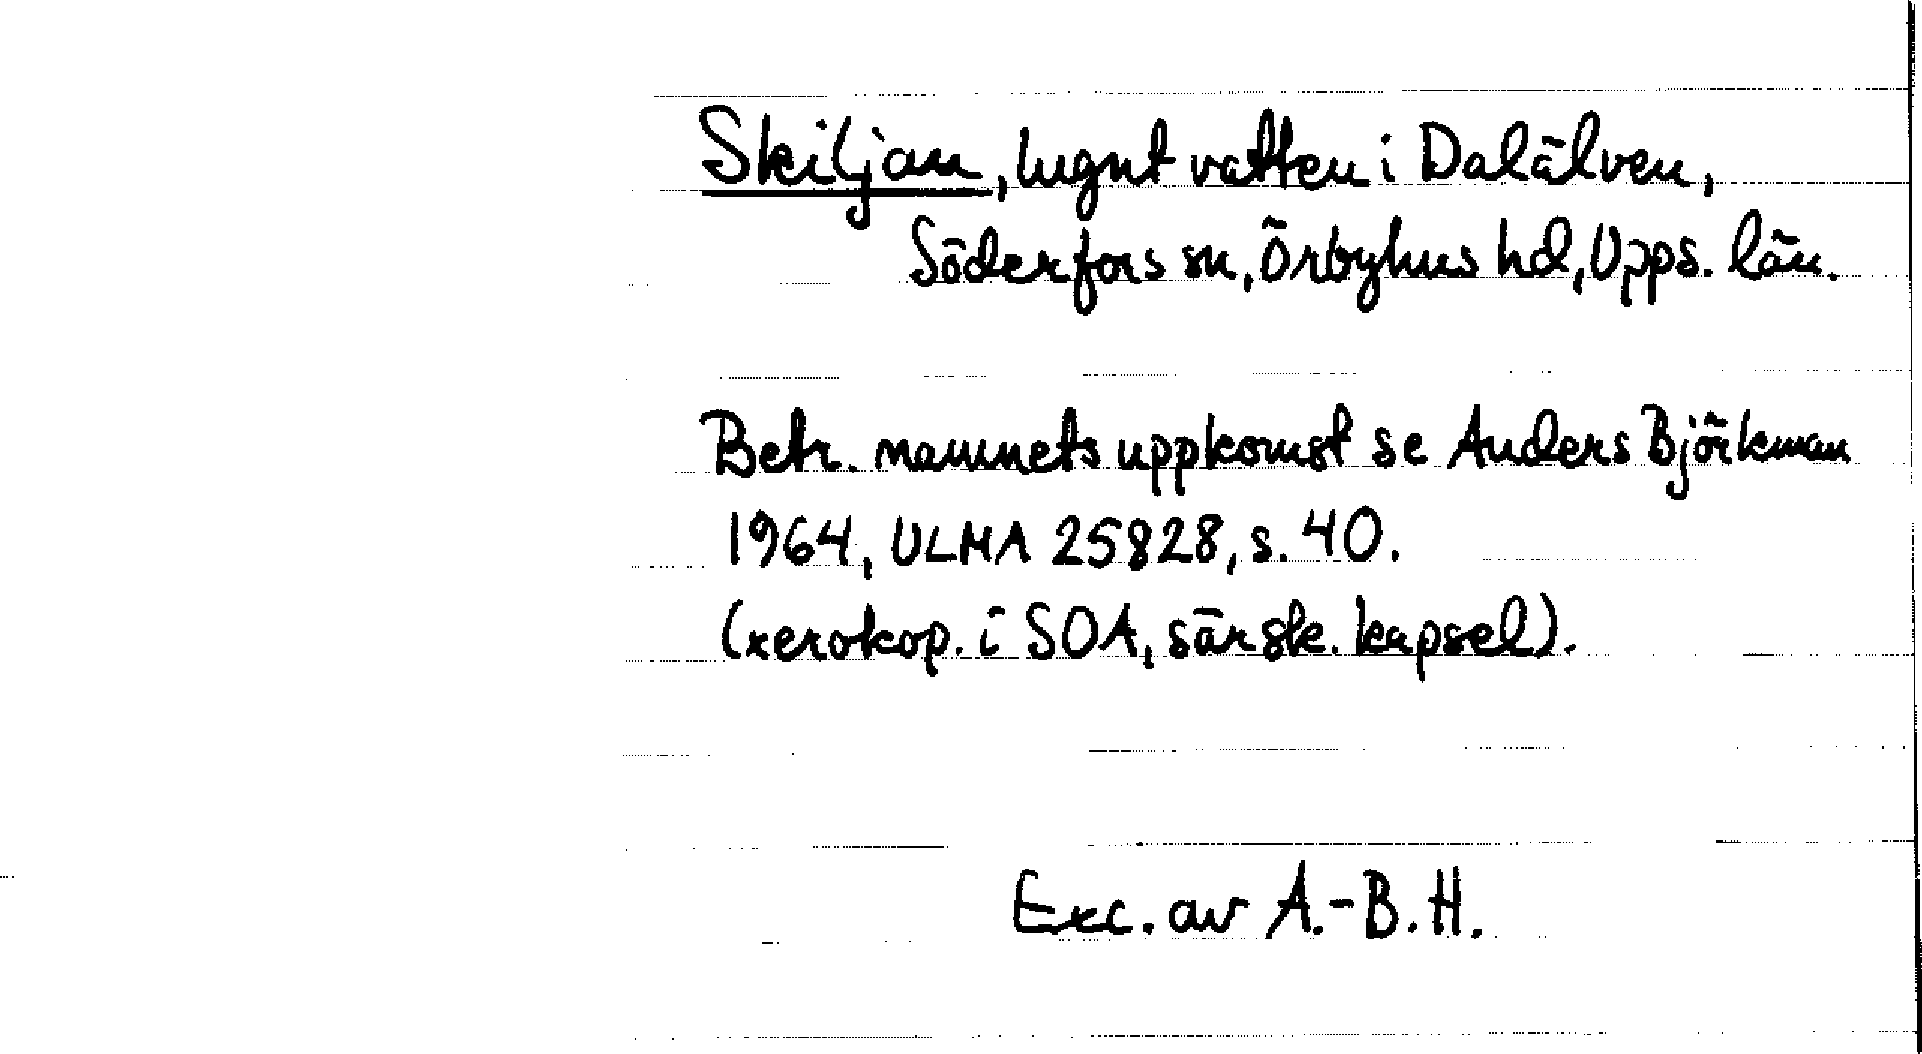 Skiljan, lugnt vatten i Dalälven,
Söderfors sn, Örbyhus hd, Upps. län.
Betr. namnets uppkomst se Anders Björkman
1964, ULMA 25828, s. 40.
(xerokop. i SOA, särsk. kapsel).
Exc. av A.-B. H.